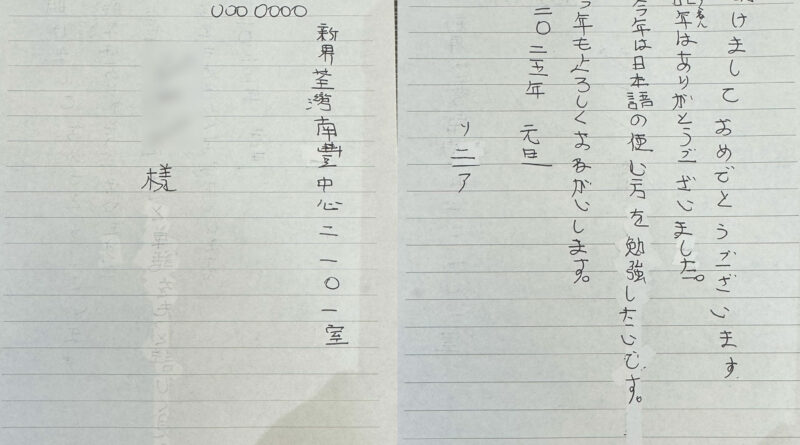 〇〇〇 〇〇〇〇
新界荃灣南豐中心二一〇一室
様
けまして おめでとうございます
年はありがとうございました。
今年は日本語の使い方を勉強したいです。
年もよろしくおねがいします。
二〇二五年 元旦
ソニア